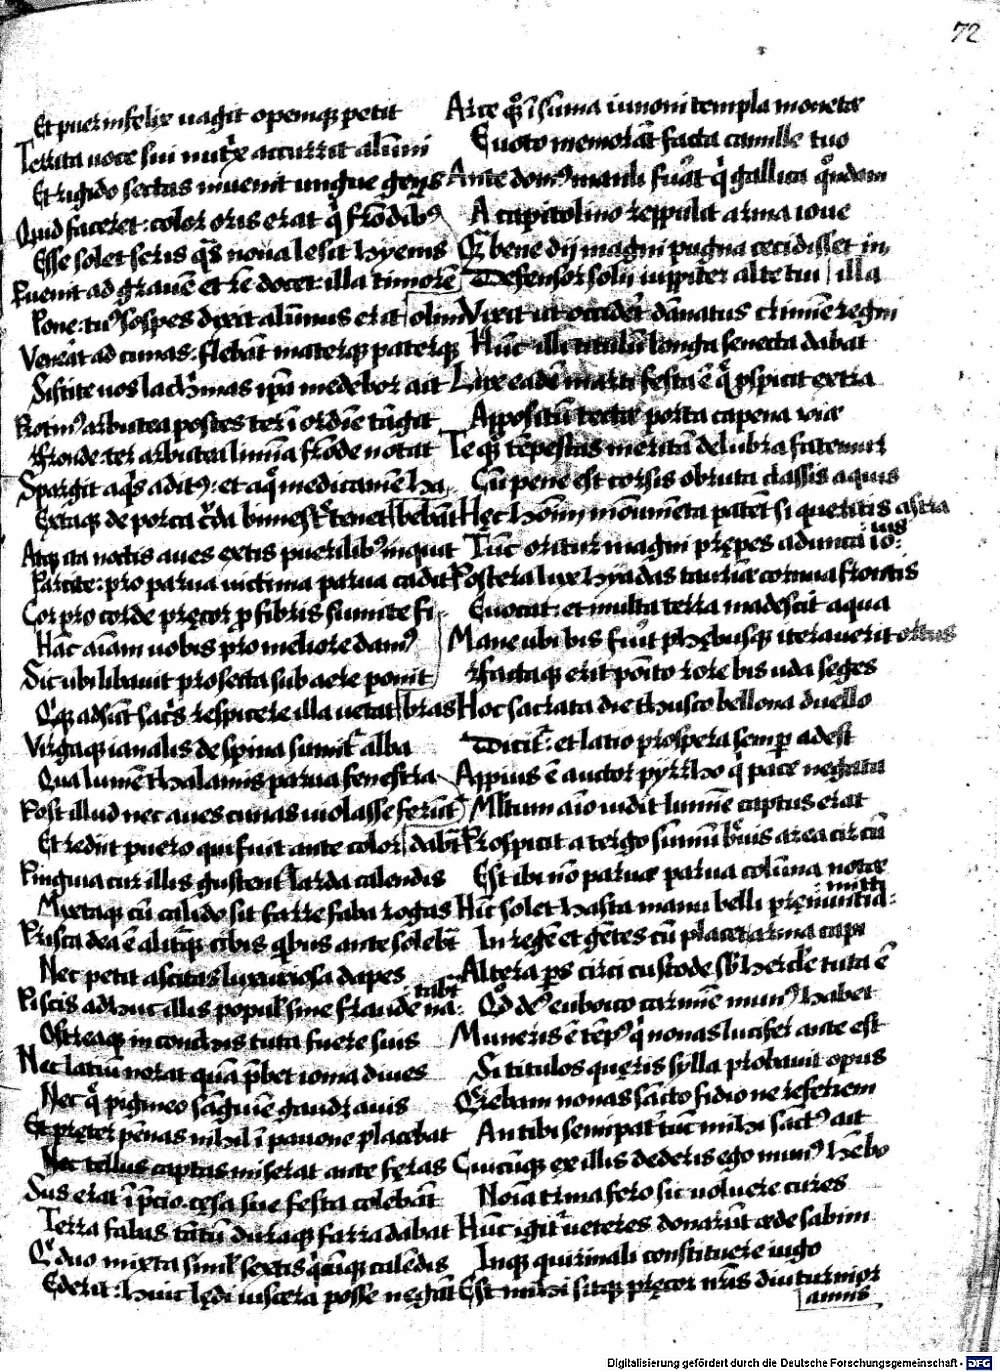 72
Et puer infelix uagit opemq petit
Territa uoce sui nutrix accurrit alūni
Et rigido sectas inuenit ungue genas
Quid faceret: color oris erat q̄ frōdibꝰ
Esse solet seris qs noua lesit hyems
Puenit ad Granē et rē docet: illa timorē
Pone: tuꝰ sospes dixit alūnus erit
Venerat ad cunas: flebāt materq paterq
Sistite uos lachrimas ipa medebor ait
Protinꝰ arbutea postes ter ī ordīe tāgit
Fronde: ter arbutea limina frōde notat
Spargit aqs aditꝰ: et aq medicamē ha
Extaq de porca cda bimestr tenet bebāt
Atq ita noctis aues extis puerilibꝰ inquit
Parcite: pro parua uictima parua cadit
Cor pro corde pręcor p fibris sumite fi
Hāc aīam uobis pro meliore damꝰ
Sic ubi libauit prosecta sub aere ponit
Qiq adsūt sacris respicere illa uetat bras
Virgaq ianalis de spina sumit alba
Qua lumē thalamis parua fenestra
Post illud nec aues cunas uiolasse ferūt
Et rediit puero qui fuit ante color dabāt
Pinguia cur illis gustent larda calendis
Mixtaq cū calido sit farre faba rogas
Prisca dea ē aliturq cibis qbus ante solebat
Nec petit ascitas luxuriosa dapes
Piscis adhuc illis popul sine fraude na: tabat
Ostreaq in conchis tuta fuere suis
Nec latiū norat quā pbet ionia diues
Nec q̄ pigmeo sāguīe gaudet auis
Et pręter pēnas nihil ī pauone placebat
Nec tellus captas miserat ante feras
Sus erat ī pcio cęsa sue festa colebāt
Terra fabas tātū duraq farra dabat
Qę duo mixta simul sextis qcūq calēdis
Ederit: huic lędi uiscera posse negāt
Arce qq ī sūma iunoni templa monetæ
E uoto memorāt facta camille tuo
Ante domꝰ manli fuat q gallica qdam
A capitolino reppulit arma ioue
Q bene dij magni pugna cecidisset in
Defensor solii iuppiter alte tui illa
olim Vixit ut occideret dānatus crimīe regni
Hūc illi titulū longa senecta dabat
Lux eadē marti festa ē q pspicit extra
Appositū tectæ porta capena uiæ
Te qq tēpestas meritā delubra fatemur
Cū pene est corsis obruta classis aquis
Hęc hoīm monimēta patēt si queritis astra
Tūc oritur magni prępes adunca io: uis
Postera lux hyadas taurinæ cornua frontis
Euocat: et multa terra madescit aqua
Mane ubi bis fuit phębusq iterauerit ortus
Factaq erit posito rore bis uda seges
Hoc sacrata die thusco bellona duello
Dicitr: et latio prospera semp adest
Appius ē auctor pyrrho q pace negata
Mltum aīo uidit lumīe captus erat
Prospicit a tergo summū breuis area circū
Est ibi nō paruæ parua colūna notæ
Hīc solet hasta manu belli pręnuntia: mitti
In regē et gētes cū placet arma capi
Altera ps circi custode sb hercule tuta ē
Qd deꝰ euboico carmīe munꝰ habet
Muneris ē tēpꝰ q nonas lucifer ante est
Si titulos quęris sylla probauit opus
Qrebam nonas sācto fidio ne referrem
An tibi semipater: tūc mihi sāctꝰ ait
Cuicūq ex illis dederis ego munꝰ hēbo
Noīa trina fero sic uoluere cures
Hūc igitr ueteres donarūt æde sabini
Inq quirinali constituere iugo
Est mihi sitq pręcor nris diuturnior
annis
Digitalisierung gefördert durch die Deutsche Forschungsgemeinschaft - DFG